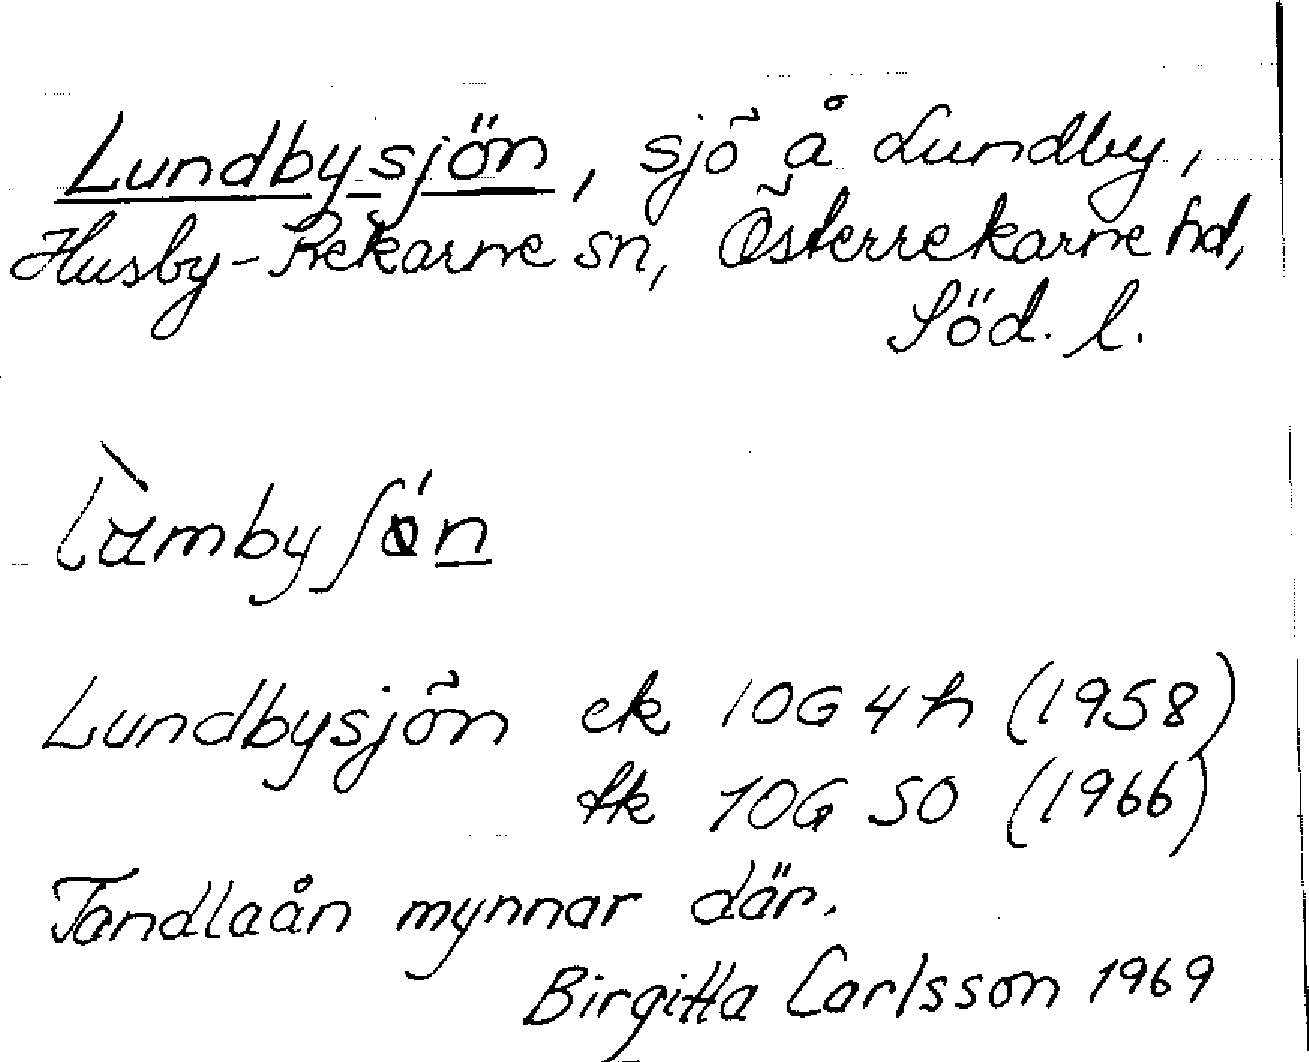 Lundbysjön, sjö å Lundby,
Husby-Rekarne sn, Österrekarne hd,
Söd. l.
Lundbysjön ek 10G 4h (1958)
tk 10G SO (1966)
Tandlaån mynnar där.
Birgitta Carlsson 1969